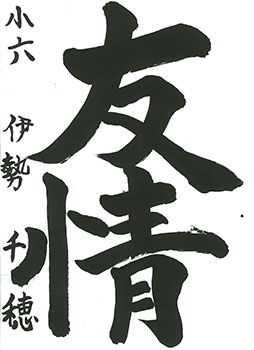 友情
小六 伊勢 千穂